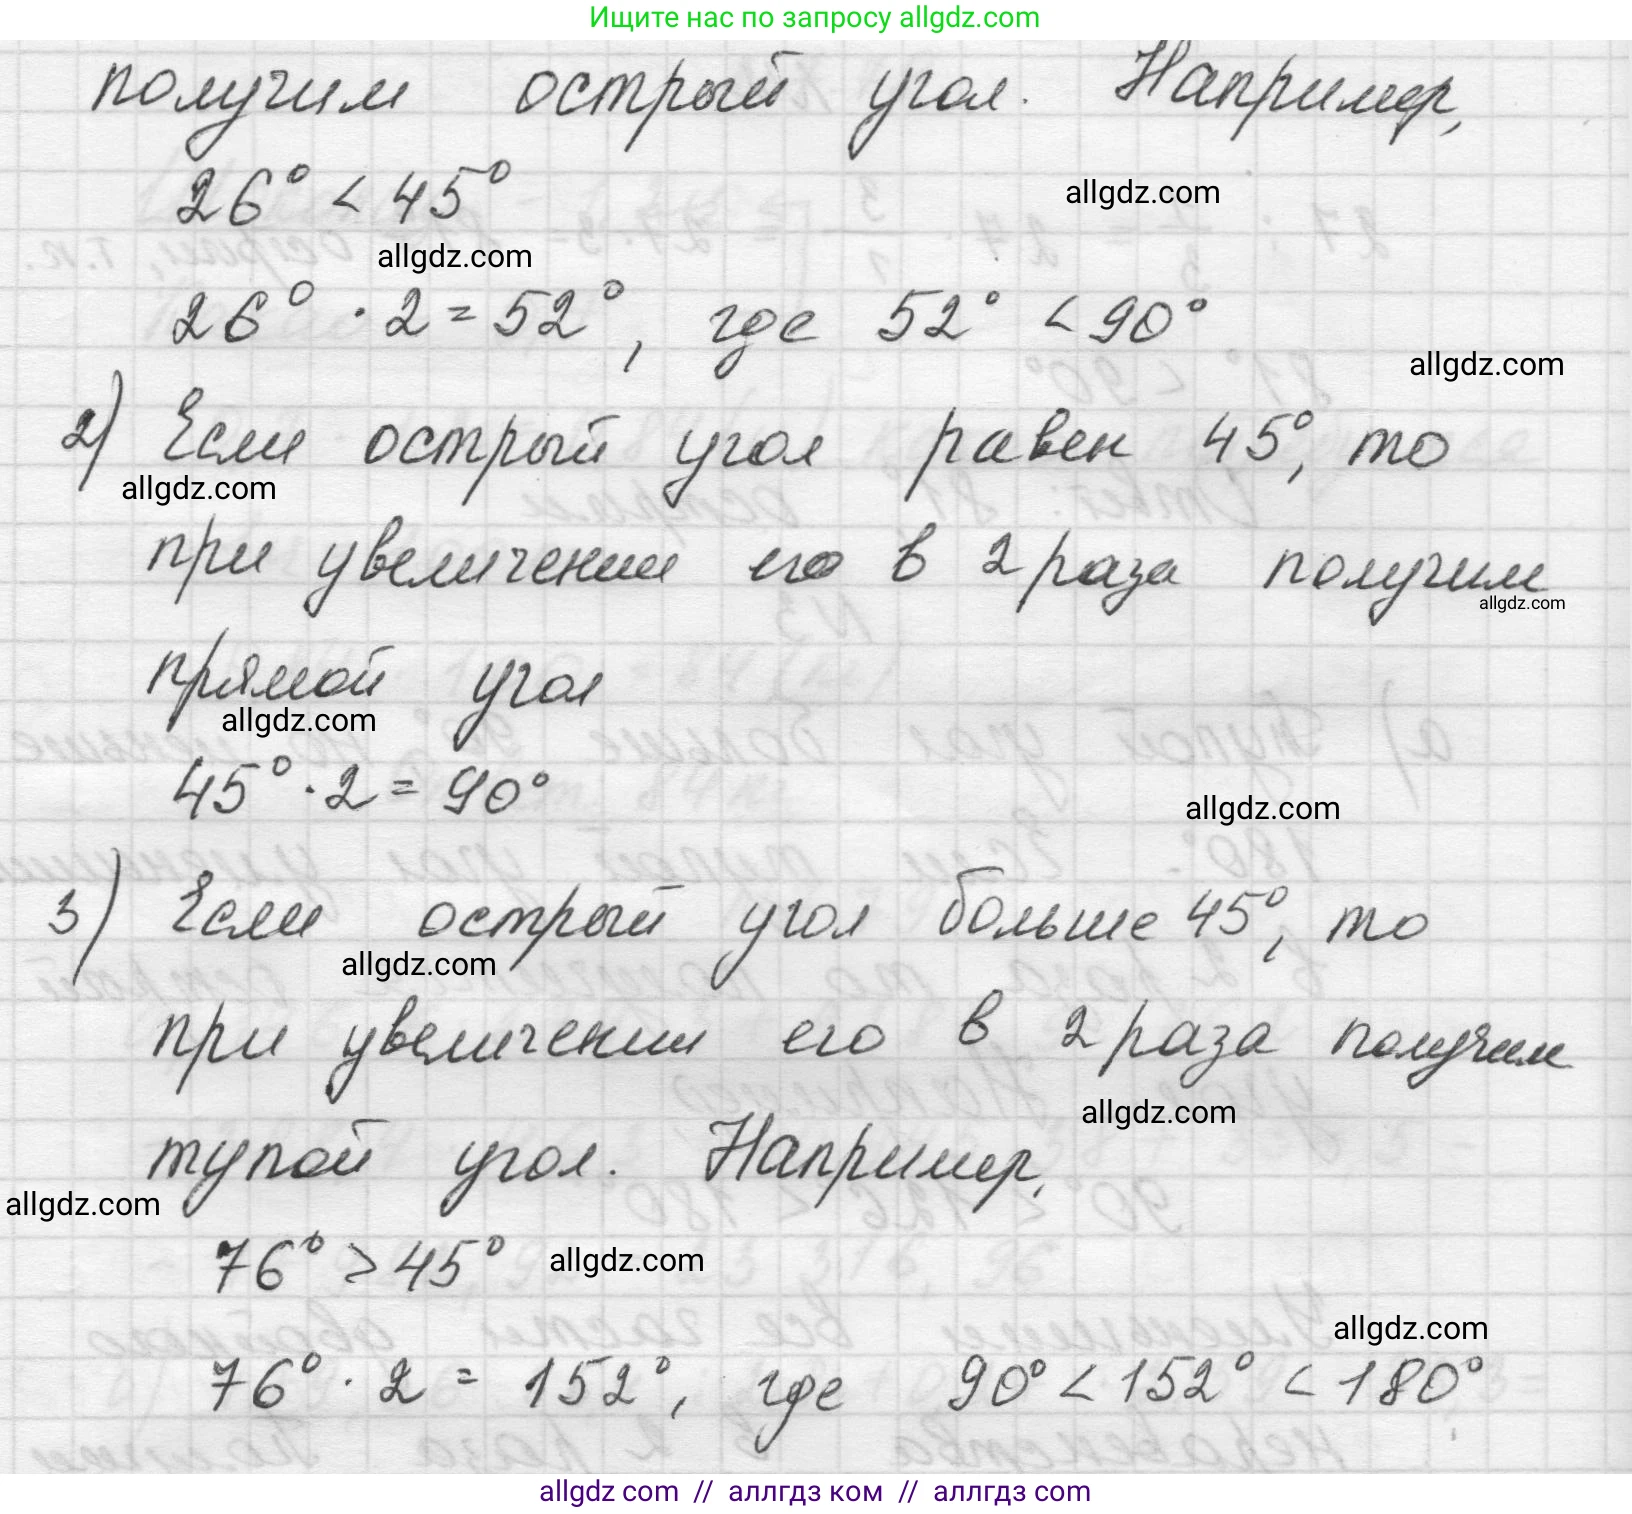 Ищите нас по запросу allgdz.com
получим острый угол. Например,
26° < 45°
allgdz.com
allgdz.com
26° · 2 = 52°, где 52° < 90°
allgdz.com
2) Если острый угол равен 45°, то
allgdz.com
при увеличении его в 2 раза получим
allgdz.com
прямой угол
allgdz.com
45° · 2 = 90°
allgdz.com
3) Если острый угол больше 45°, то
allgdz.com
при увеличении его в 2 раза получим
allgdz.com
тупой угол. Например,
allgdz.com
76° > 45°
allgdz.com
allgdz.com
76° · 2 = 152°, где 90° < 152° < 180°
allgdz com // аллгдз ком // аллгдз com